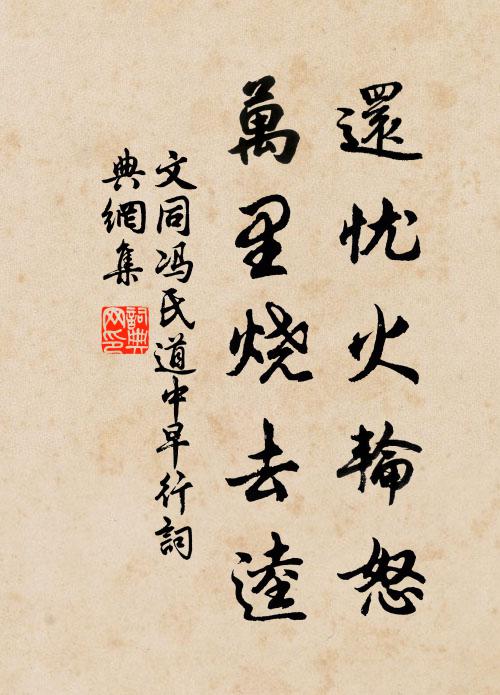 還忧火輪怒
萬里烧去逵
文同冯氏道中早行詞
典網集
詞典
网印